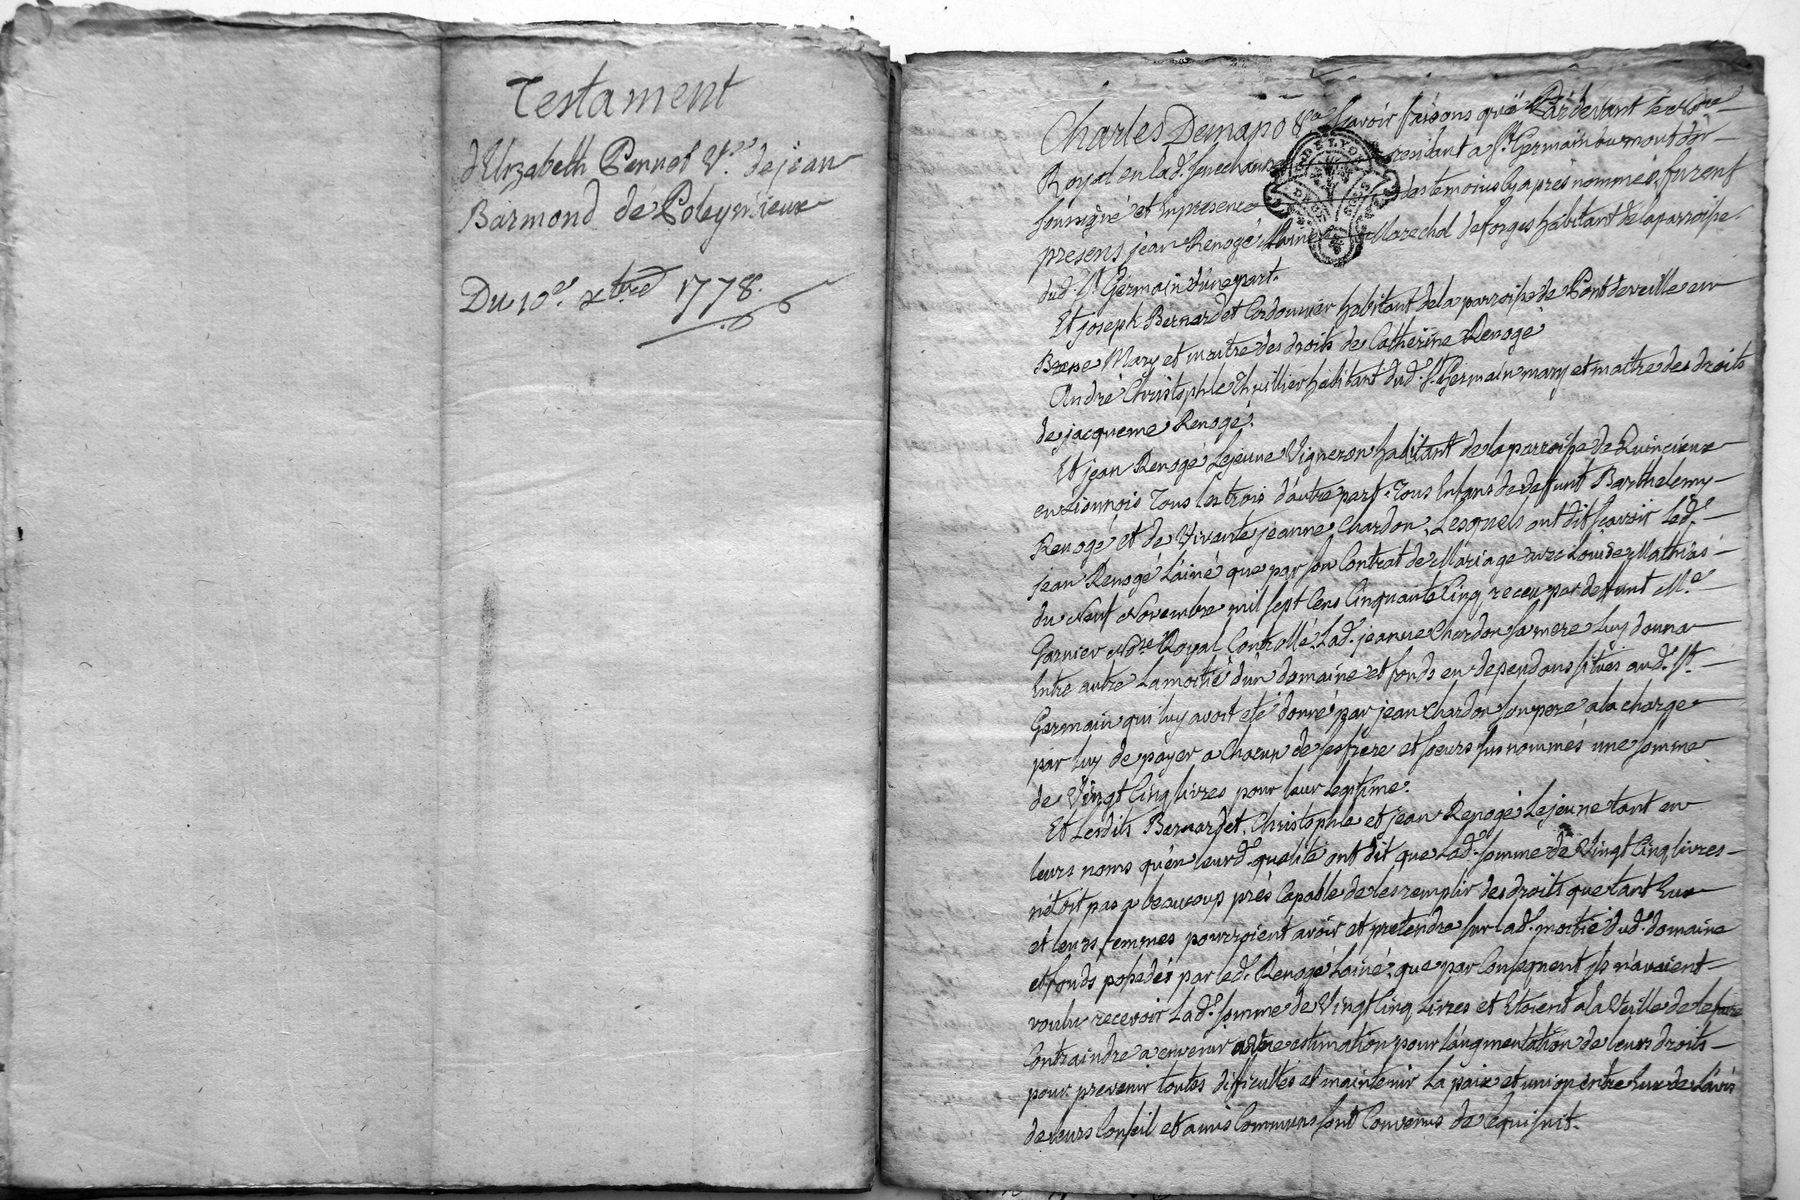 Testament
d'Elizabeth Pennet Ve. de jean
Barmond de Poleymieux
Du 10e. xbre 1778.
Charles Demano &a Savoir faisons que Pardevant le Nore
Royal en lad. Senechaussé residant a St. Germain au mont d'or
soussigné et en presence des temoins cy apres nommés, furent
presens jean Renoge L'ainé Marechal de forges habitant de la parroisse
dud. St. Germain d'une part.
Et joseph Bernardet Cordonnier habitant de la parroisse de Pont de veille en
Bresse Mary et maitre des droits de Catherine Renoge
André Christophle Thuillier habitant dud. St. Germain mary et maitre des droits
de jacqueme Renoge.
Et jean Renoge Lejeune Vigneron habitant de la parroisse de Quincieux
en Lionnois Tous les trois d'autre part. Tous Enfans de deffunt Barthelemy
Renoge et de Vivante jeanne Chardon, Lesquels ont dit sçavoir Led.
jean Renoge L'ainé que par son Contrat de Mariage avec Louise Mathias
du Neuf Novembre mil sept Cens Cinquante Cinq receu par deffunt Me.
Garnier Nore Royal Controllé Lad. jeanne Chardon sa mere luy donna
Entre autre La moitié d'un domaine et fonds en dependans situés aud. St.
Germain qui luy avoit eté donné par jean Chardon son pere a la charge
par luy de payer a Chacun de ses frere et soeurs sus nommés une somme
de Vingt Cinq livres pour leur legitime.
Et Lesdits Bernardet, Christophle et jean Renoge Lejeune tant en
leurs noms qu'en leurd. qualité ont dit que Lad. somme de Vingt Cinq livres
n'etoit pas a beaucoup près Capable de les remplir des droits que tant Eux
et leurs femmes pourroient avoir et pretendre sur lad. moitié dud. domaine
et fonds possedés par led. Renoge L'ainé, que par Consequent ils n'avaient
voulu recevoir Lad. somme de Vingt Cinq Livres et Etoient a la Veille de le faire
Contraindre a en venir a une estimation pour l'augmentation de leurs droits
pour prevenir toutes difficultés et maintenir La paix et union entre Eux de L'avis
de leurs Conseil et amis Communs sont Convenus de Ce qui suit.